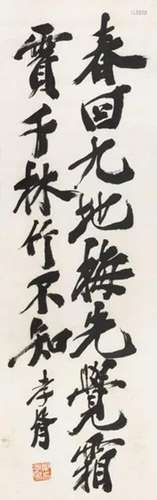 春回九地梅先覺霜
實千林竹不知
孝胥